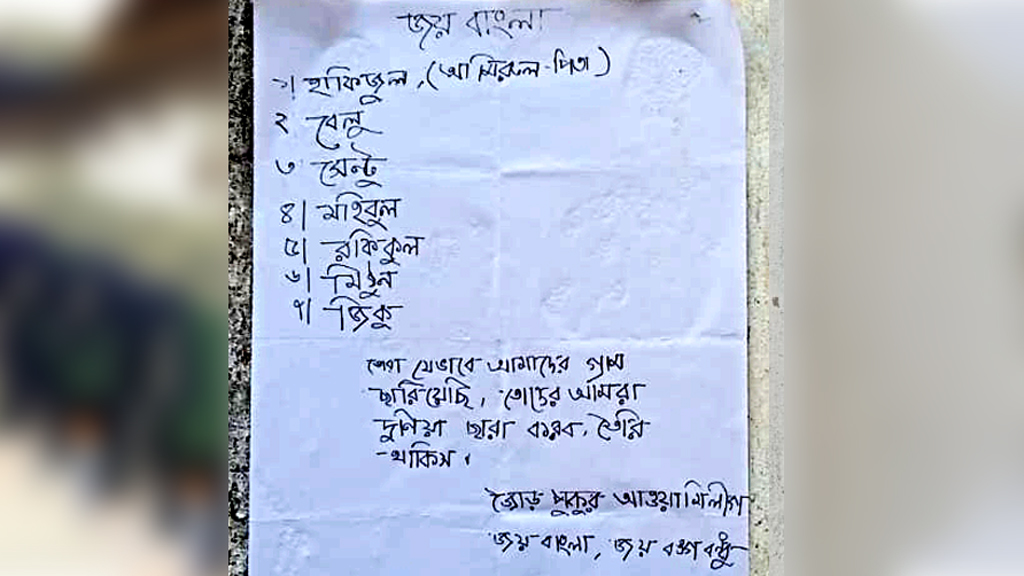 জয় বাংলা
১। হাফিজুল, (আমিরুল-পিতা)
২ বেলু
৩ সেন্টু
৪। মহিবুল
৫। রফিকুল
৬। মিঠুন
৭। জিকু
যেভাবে আমাদের গ্রাম
ছারিয়েছি, তোদের আমরা
দুনিয়া ছারা করব, তৈরি
থাকিস।
জোড় পুকুর আওয়ামিলীগ
জয় বাংলা, জয় বঙ্গবন্ধু